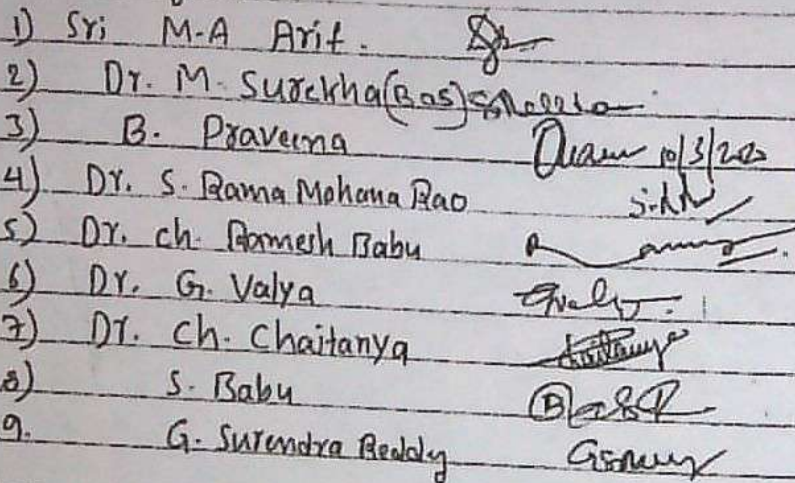 1) Sri M.A Arif.
2) Dr. M. Surekha (Bos)
3) B. Praveena 10/3/2020
4) Dr. S. Rama Mohana Rao
5) Dr. ch. Ramesh Babu
6) Dr. G. Valya
7) Dr. Ch. Chaitanya
8) S. Babu
9. G. Surendra Reddy